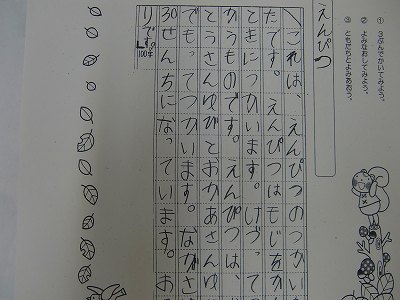 ① 3ぶんでかいてみよう。
② よみなおしてみよう。
③ ともだちとよみあおう。
えんぴつ
これは、えんぴつのつかい
たです。えんぴつはもじをか
ときにつかいます。けづって
かうものです。えんぴつは、
とうさんゆびとおかあさんゆ
でもってつかいます。ながさ
30せんちになっています。お
りです。
100字